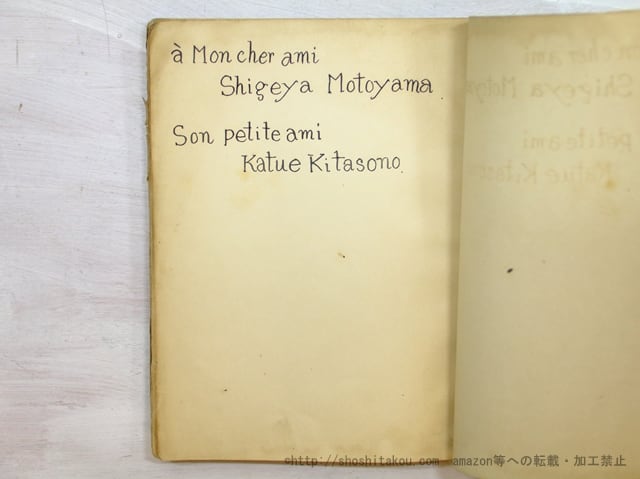 à Mon cher ami
Shigeya Motoyama.
Son petite ami
Katue Kitasono.
©http://shoshitakou.com amazon等への転載・加工禁止